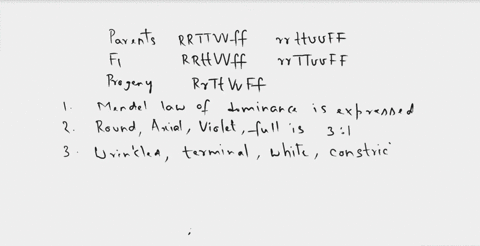 Parents RRTTVVff rrttvvFF
F1 RRttVVff rrTTvvFF
Progeny RrTtVvFf
1. Mendel law of dominance is expressed
2. Round, Axial, Violet, full is 3:1
3. Wrinkled, terminal, white, constric